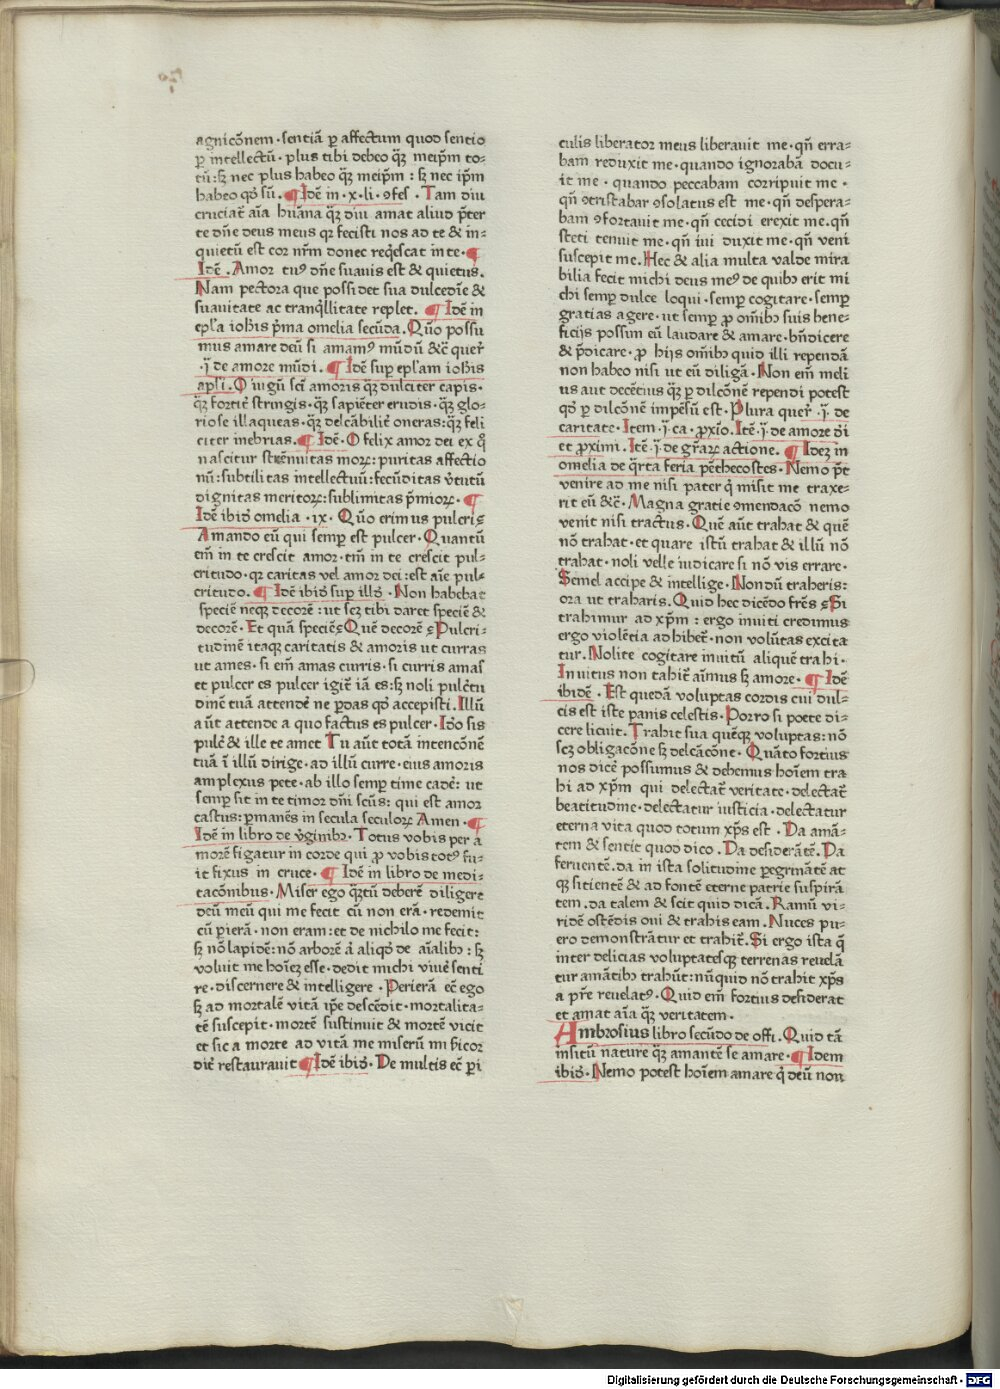 agnicōnem · sentiā ꝑ affectum quod sentio
ꝑ intellectū · plus tibi debeo qꝫ meip̄m to⸗
tū : sꝫ nec plus habeo qꝫ meip̄m : sꝫ nec ip̄m
habeo qđ sū . ¶ Idē in · x · li · ꝯfes̄ . Tam diu
cruciat̄ aīa hūana qꝫ diu amat aliud p̄ter
te dn̄e deus meus qꝛ fecisti nos ad te & in⸗
quietū est cor nr̄m donec reqͥescat in te · ¶
Idē . Amor tuꝰ dn̄e suauis est & quietus .
Nam pectora que possidet sua dulcedīe &
suauitate ac tranqͥllitate replet . ¶ Idē in
epl̄a ioh̄is p̄ma omelia secūda . Quō possu
mus amare deū si amamꝰ mūdū &c̄ quer̄
· ij̄ · de amore mūdi . ¶ Idē sup epl̄am ioh̄is
apl̄i . O iugū sc̄i amoris qꝫ dulciter capis ·
qꝫ fortit̄ stringis · qꝫ sapiēter erudis · qꝫ glo⸗
riose illaqueas · qꝫ delcābilit̄ oneras : qꝫ feli
citer inebrias . ¶ Idē · O felix amor dei ex qͦ
nascitur strēnuitas moꝝ : puritas affectio
nū : subtilitas intellectuū : fecūditas v̄tutū
dignitas meritoꝝ : sublimitas p̄mioꝝ · ¶
Idē ibiđ omelia · ix · Quō erimus pulcri ?
Amando eū qui semꝑ est pulcer · Quantū
em̄ in te crescit amor · tm̄ in te crescit pul⸗
critudo · qꝛ caritas vel amor dei : est aīe pul⸗
critudo . ¶ Idē ibiđ sup illđ · Non habebat
speciē neqꝫ decorē : ut scꝫ tibi daret speciē &
decorē · Et quā speciē ? Quē decorē ? Pulcri⸗
tudinē itaqꝫ caritatis & amoris ut curras
ut ames · si em̄ amas curris · si curris amas
et pulcer es pulcer igit̄ iā es : sꝫ noli pulc̄tu
dinē tuā attendē ne ꝑdas qđ accepisti . Illū
aūt attende a quo factus es pulcer · Iđo sis
pulc̄ & ille te amet Tu aūt totā intencōnē
tuā ī illū dirige · ad illū curre · eius amoris
amplexus pete · ab illo semꝑ time cadē : ut
semꝑ sit in te timor dn̄i sc̄us : qui est amor
castus : ꝑmanēs in secula seculoꝝ Amen · ¶
Idē in libro de v̄ginibꝫ . Totus vobis per a
morē figatur in corde qui ꝓ vobis totꝰ fu⸗
it fixus in cruce . ¶ Idē in libro de medi⸗
tacōnibus . Miser ego qꝫtū deberē diligere
deū meū qui me fecit cū non erā · redemit
cū ꝑierā . non eram : et de nichilo me fecit :
sꝫ nō lapidē : nō arborē aͭ aliqđ de aīalibꝫ : sꝫ
voluit me hoīeꝫ esse · dedit michi viuē senti
re · discernere & intelligere . Perierā ec̄ ego
sꝫ ad mortalē vitā ip̄e descēdit · mortalita⸗
tē suscepit · mortē sustinuit & mortē vicit
et sic a morte ad vitā me miserū mīẜicor
dit̄ restaurauit ¶ Idē ibiđ · De multis ec̄ ꝑi
culis liberator meus liberauit me · qn̄ erra⸗
bam reduxit me · quando ignorabā docu⸗
it me · quando peccabam corripuit me ·
qn̄ ꝯtristabar ꝯsolatus est me · qn̄ despera⸗
bam ꝯfortauit me · qn̄ cecidi erexit me . qn̄
steti tenuit me · qn̄ iui duxit me · qn̄ veni
suscepit me . Hec & alia multa valde mira
bilia fecit michi deus meꝰ de quibꝫ erit mi
chi semꝑ dulce loqui · semꝑ cogitare · semꝑ
gratias agere · ut semꝑ ꝓ om̄ibꝫ suis bene⸗
ficijs possim eū laudare & amare · bn̄dicere
& p̄dicare · ꝓ hijs om̄ibꝫ quid illi rependā
non habeo nisi ut eū diligā · Non em̄ meli
us aut decētius qꝫ ꝑ dilcōnē rependi potest
qđ ꝑ dilcōnē impēsū est · Plura quer̄ · ij̄ · de
caritate · Item · ij̄ · ca · ꝓxīo . Itē · ij̄ · de amore dī
et ꝓximi . Itē · ij̄ · de gr̄aꝝ actione . ¶ Ideꝫ in
omelia de qͣrta feria pēthecostes · Nemo p̄t
venire ad me nisi pater qͥ misit me traxe⸗
rit eū &c̄ · Magna gratie ꝯmendacō nemo
venit nisi tractus · Quē aūt trahat & quē
nō trahat · et quare istū trahat & illū nō
trahat · noli velle iudicare si nō vis errare ·
Semel accipe & intellige . Nondū traheris :
ora ut traharis . Quid hec dicēdo fr̄es ? Si
trahimur ad xp̄m : ergo inuiti credimus
ergo violētia adhibet̄ · non volūtas excita
tur . Nolite cogitare inuitū aliquē trahi ·
Inuitus non tahit̄ aīmus sꝫ amore · ¶ Idē
ibidē · Est quedā voluptas cordis cui dul⸗
cis est iste panis celestis · Porro si poete di⸗
cere licuit . Trahit sua quēqꝫ voluptas : nō
scꝫ obligacōne sꝫ delcācōne · Quāto fortius
nos dicē possumus & debemus hoīem tra
hi ad xp̄m qui delectat̄ veritate · delectat̄
beatitudine · delectatur iusticia · delectatur
eterna vita quod totum xp̄s est · Da amā⸗
tem & sentit quod dico . Da desiderātē . Da
feruentē . da in ista solitudine ꝑegrīnātē at
qꝫ sitientē & ad fontē eterne patrie suspirā
tem . da talem & scit quid dicā . Ramū vi⸗
ridē ostēdis oui & trahis eam . Nuces pu⸗
ero demonstrātur et trahit̄ . Si ergo ista q̄
inter delicias voluptatesqꝫ terrenas reuelā
tur amātibꝫ trahūt : nūquid nō trahit xp̄s
a pr̄e reuelatꝰ . Quid em̄ fortius desiderat
et amat aīa qꝫ veritatem .
Ambrosius libro secūdo de offi . Quid tā
insitū nature qꝫ amantē se amare · ¶ Idem
ibiđ . Nemo potest hoīem amare qͥ deū non
Digitalisierung gefördert durch die Deutsche Forschungsgemeinschaft - DFG